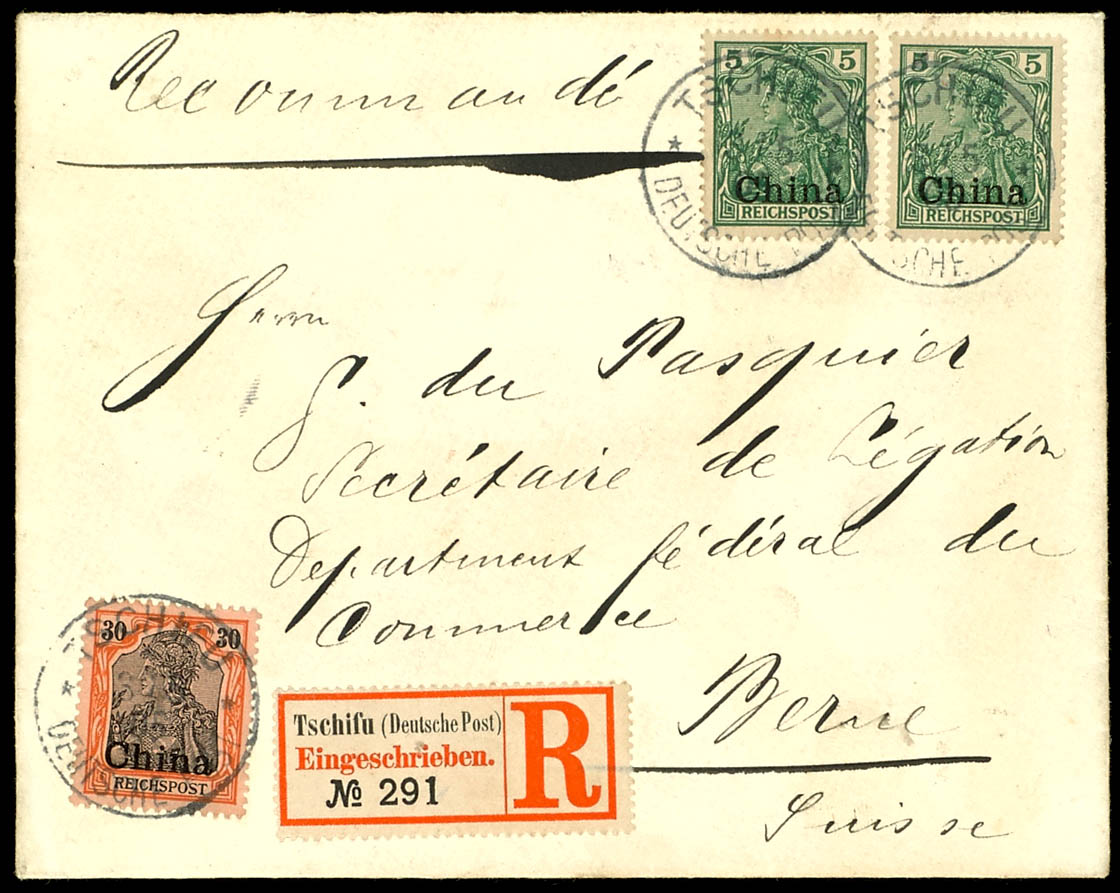 Recommandé
5 5
China
REICHSPOST
5 5
China
REICHSPOST
TSCHIFU
DEUTSCHE POST
TSCHIFU
DEUTSCHE POST
Herrn
G. du Pasquier
Secrétaire de Légation
Department fédéral du
Commerce
Berne
Suisse
30 30
China
REICHSPOST
TSCHIFU
DEUTSCHE
Tschifu (Deutsche Post)
Eingeschrieben.
№ 291
R